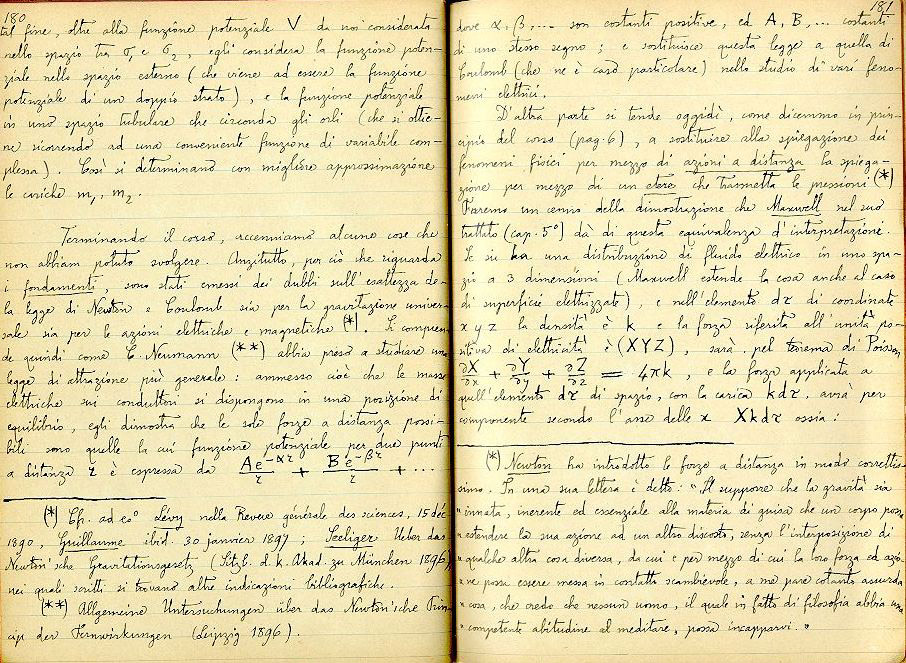 180
tal fine, oltre alla funzione potenziale V da noi considerata
nello spazio tra σ₁ e σ₂, egli considera la funzione poten-
ziale nello spazio esterno (che viene ad essere la funzione
potenziale di un doppio strato), e la funzione potenziale
in uno spazio tubulare che circonda gli orli (che si ottie-
ne ricorrendo ad una conveniente funzione di variabile com-
plessa). Così si determinano con migliore approssimazione
le cariche m₁, m₂.
Terminando il corso, accenniamo alcune cose che
non abbiam potuto svolgere. Anzitutto, per ciò che riguarda
i fondamenti, sono stati emessi dei dubbi sull'esattezza del-
la legge di Newton e Coulomb sia per la gravitazione univer-
sale sia per le azioni elettriche e magnetiche (*). Si compren-
de quindi come C. Neumann (**) abbia preso a studiare una
legge di attrazione più generale: ammesso cioè che le masse
elettriche sui conduttori si dispongono in una posizione di
equilibrio, egli dimostra che le sole forze a distanza possi-
bili sono quelle la cui funzione potenziale per due punti
a distanza r è espressa da Ae^-αr/r + Be^-βr/r + ....
(*) Cfr. ad es° Lévy nella Revue générale des sciences, 15 déc
1890, Guillaume ibid. 30 janvier 1897; Seeliger Ueber das
Newton'sche Gravitationsgesetz (Sitzb. d. k. Akad. zu München 1896)
nei quali scritti si trovano altre indicazioni bibliografiche.
(**) Allgemeine Untersuchungen über das Newton'sche Prin-
cip der Fernwirkungen (Leipzig 1896).
181
dove α, β, ... son costanti positive, ed A, B, ... costanti
di uno stesso segno; e sostituisce questa legge a quella di
Coulomb (che ne è caso particolare) nello studio di vari feno-
meni elettrici.
D'altra parte si tende oggidì, come dicemmo in prin-
cipio del corso (pag. 6), a sostituire alla spiegazione dei
fenomeni fisici per mezzo di azioni a distanza la spiega-
zione per mezzo di un etere che trasmetta le pressioni (*)
Faremo un cenno della dimostrazione che Maxwell nel suo
trattato (cap. 5°) dà di questa equivalenza d'interpretazione.
Se si ha una distribuzione di fluido elettrico in uno spa-
zio a 3 dimensioni (Maxwell estende la cosa anche al caso
di superficie elettrizzate), e nell'elemento dτ di coordinate
x y z la densità è k e la forza riferita all'unità po-
sitiva di elettricità è (XYZ), sarà pel teorema di Poisson
∂X/∂x + ∂Y/∂y + ∂Z/∂z = 4πk, e la forza applicata a
quell'elemento dτ di spazio, con la carica kdτ, avrà per
componente secondo l'asse delle x Xkdτ ossia:
(*) Newton ha introdotto le forze a distanza in modo correttis-
simo. In una sua lettera è detto: "Il supporre che la gravità sia
"innata, inerente ed essenziale alla materia di guisa che un corpo possa
"estendere la sua azione ad un altro discosto, senza l'interposizione di
"qualche altra cosa diversa, da cui e per mezzo di cui la loro forza ed azio-
"ne possa essere messa in contatti scambievole, a me pare cotanto assurda
"cosa, che credo che nessun uomo, il quale in fatto di filosofia abbia una
"competente abitudine al meditare, possa incapparvi."